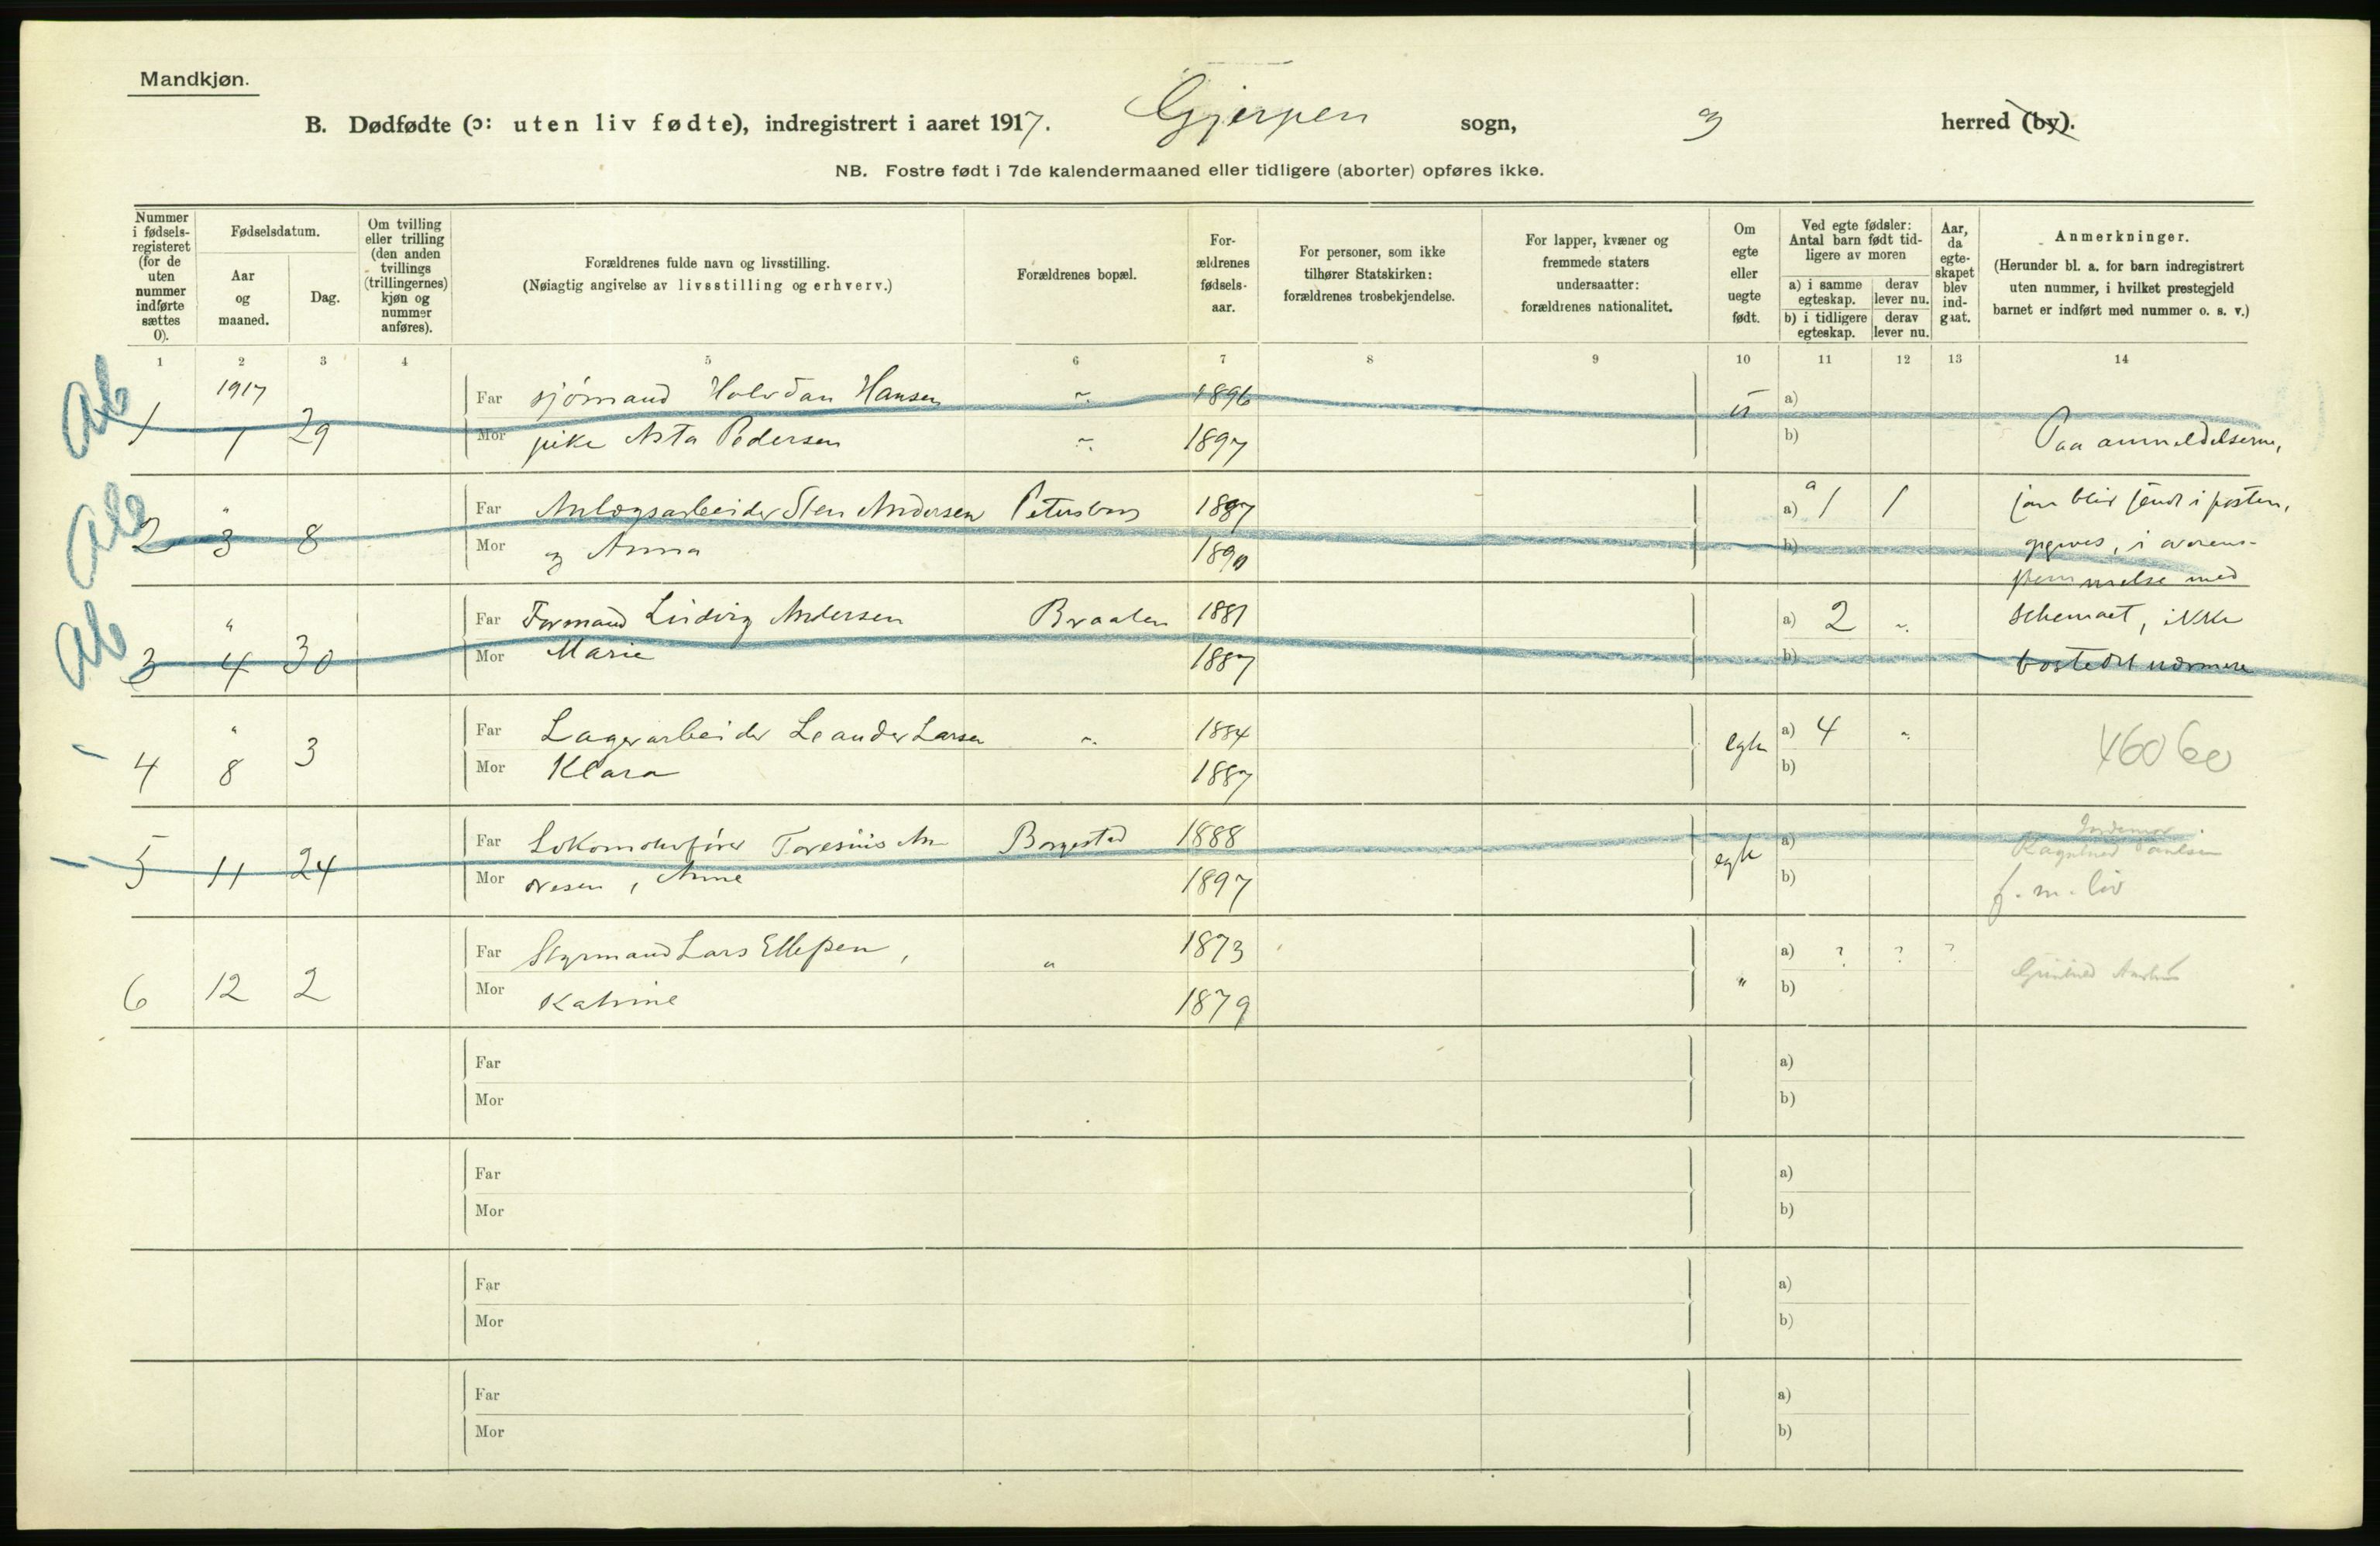 Mandkjøn.
B. Dødfødte (ɔ: uten liv fødte), indregistrert i aaret 1917. Gjerpen sogn, herred (by).
NB. Fostre født i 7de kalendermaaned eller tidligere (aborter) opføres ikke.
Nummer i fødsels- registeret (for de uten nummer indførte sættes 0).
Fødselsdatum.
Aar og maaned.
Dag.
Om tvilling eller trilling (den anden tvillings (trillingernes) kjøn og nummer anføres).
Forældrenes fulde navn og livsstilling.
(Nøiagtig angivelse av livsstilling og erhverv.)
Forældrenes bopæl.
For- ældrenes fødsels- aar.
For personer, som ikke tilhører Statskirken: forældrenes trosbekjendelse.
For lapper, kvæner og fremmede staters undersaatter: forældrenes nationalitet.
Om egte eller uegte født.
Ved egte fødsler: Antal barn født tid- ligere av moren
a) i samme egteskap. derav lever nu.
b) i tidligere egteskap. derav lever nu.
Aar, da egte- skapet blev ind- gaat.
Anmerkninger.
(Herunder bl. a. for barn indregistrert uten nummer, i hvilket prestegjeld barnet er indført med nummer o. s. v.)
1 2 3 4 5 6 7 8 9 10 11 12 13 14
Ab
1917
Far sjømand Halvdan Hansen 1896 a)
1 1 29
Mor pike Asta Pedersen 1897 b) Paa anmeldelserne,
Ab
" Far Anlægsarbeider Sten Andersen Petersborg 1887 a) 1 1 som blir sendt i posten,
2 3 8
Mor og Anna 1890 b) opgives, i overens-
stemmelse med
Ab
" Far Formand Ludvig Andersen Braaten 1881 a) 2 " schemaet, ikke
3 4 30
Mor Marie 1887 b) bostedet nærmere
" Far Lagerarbeider Leander Larsen " 1884 egte a) 4 "
4 8 3
Mor Klara 1887 b)
Far Lokomotivfører Toresius An Borgestad 1888 egte a) Jordemor
5 11 24
Mor dresen, Anne 1897 b) f. m. liv
Far Styrmand Lars Ellefsen, " 1873 a) ? ? ?
6 12 2 "
Mor Katrine 1879 b)
Far a)
Mor b)
Far a)
Mor b)
Far a)
Mor b)
Far a)
Mor b)